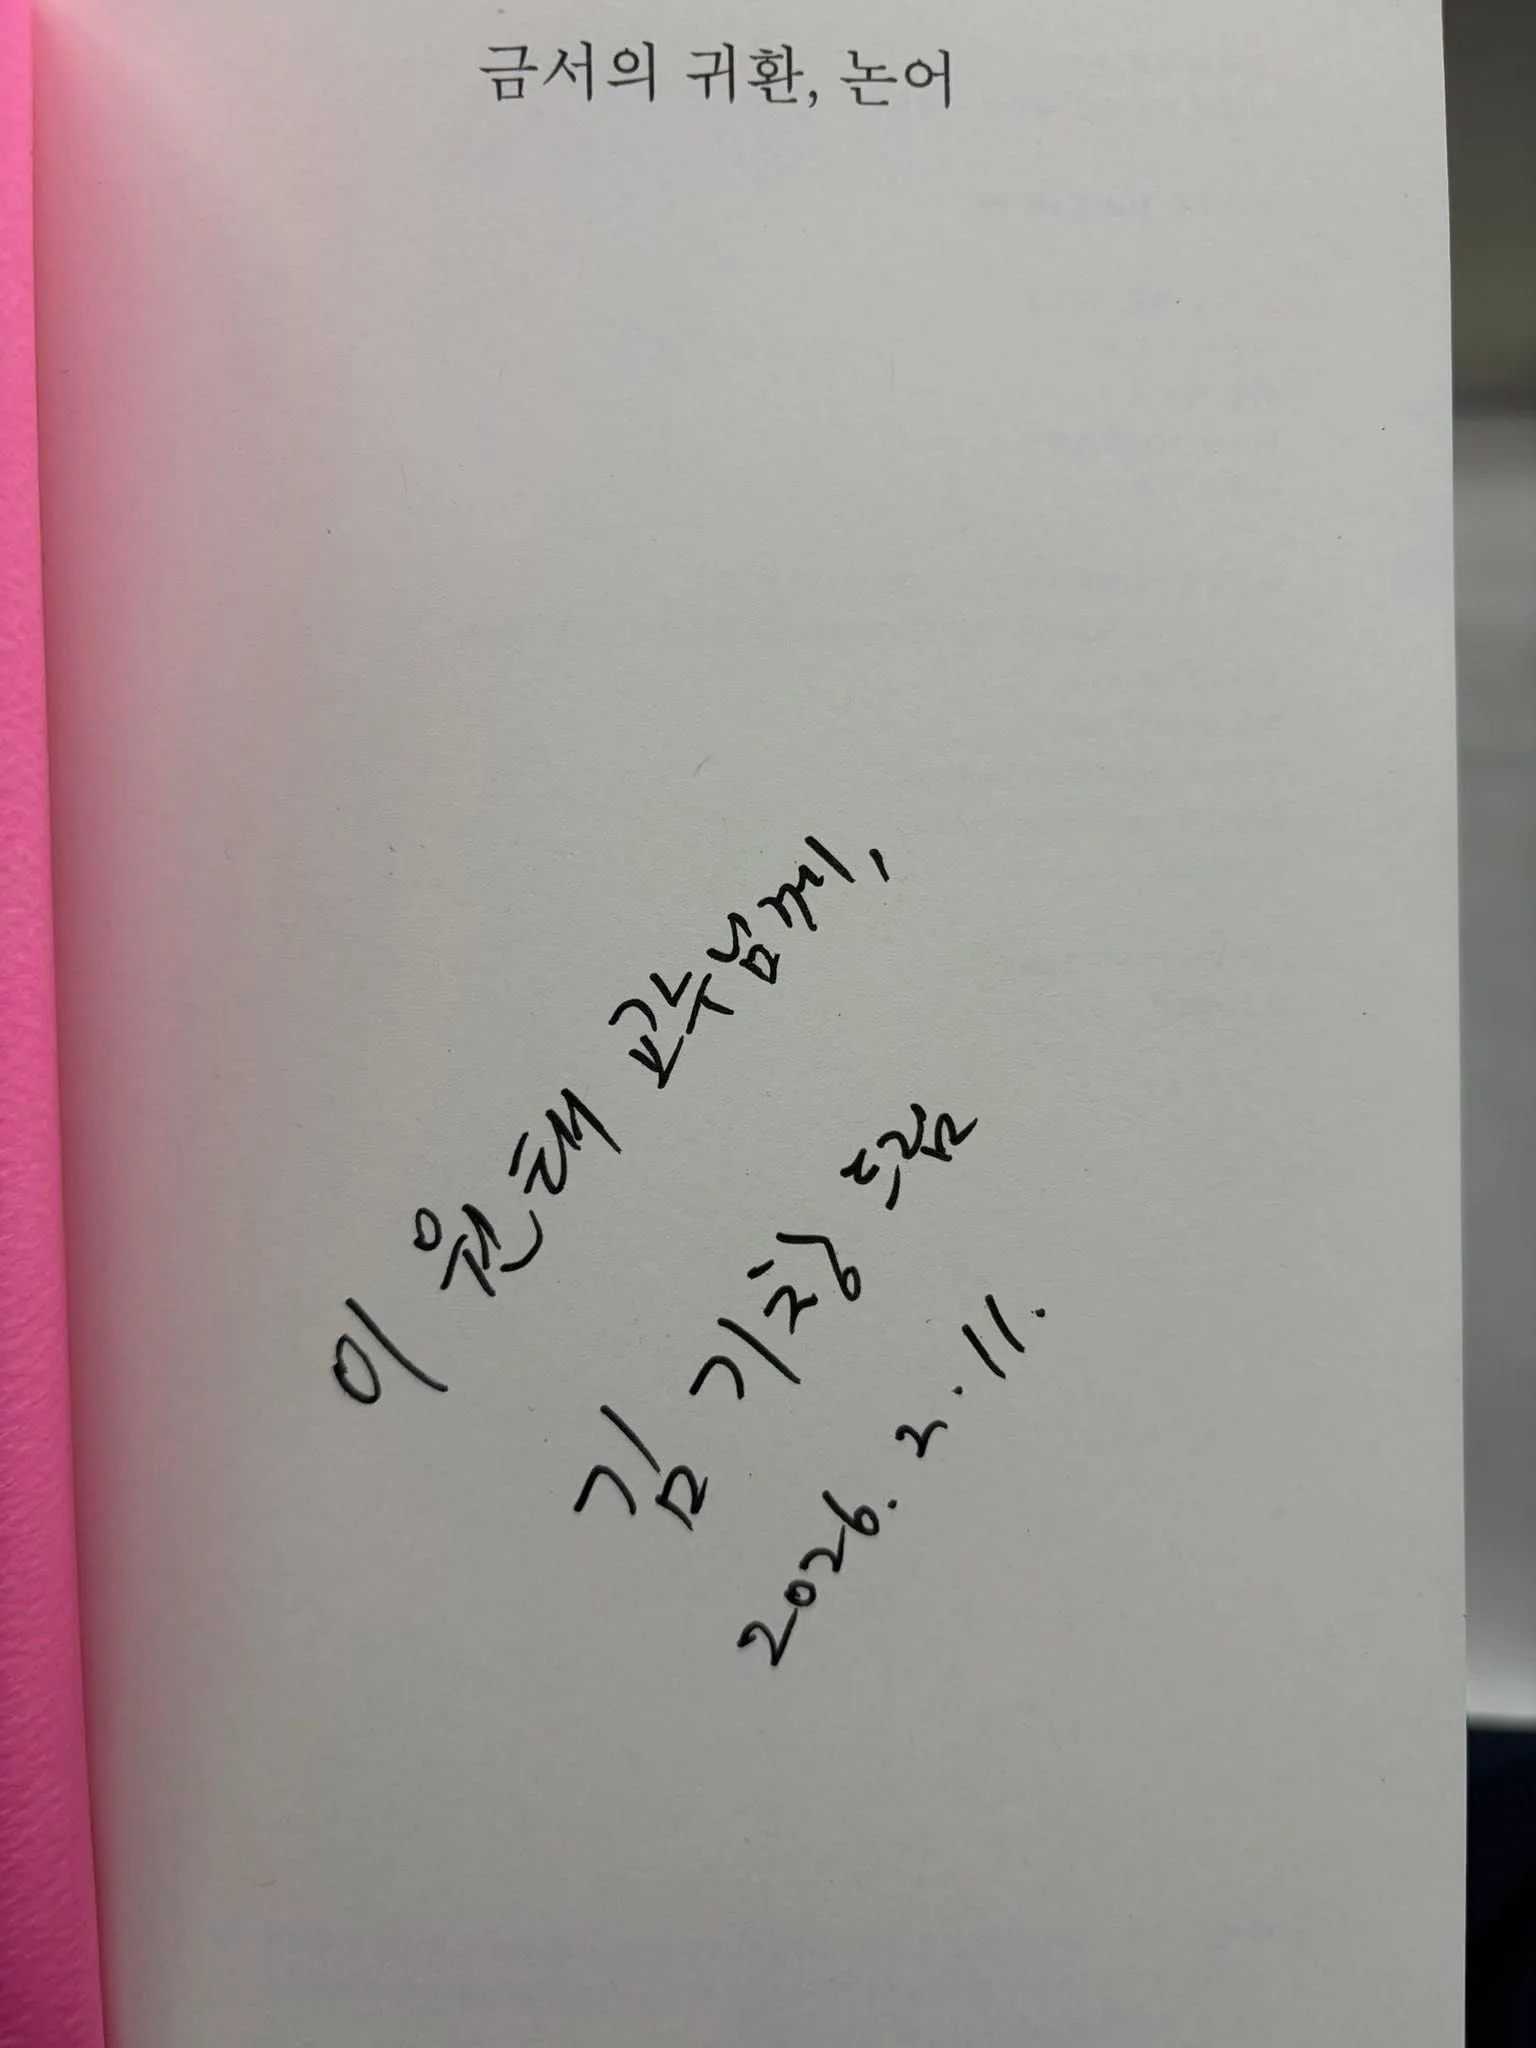 금서의 귀환, 논어
이원태 교수님께,
김기창 드림
2026. 2. 11.